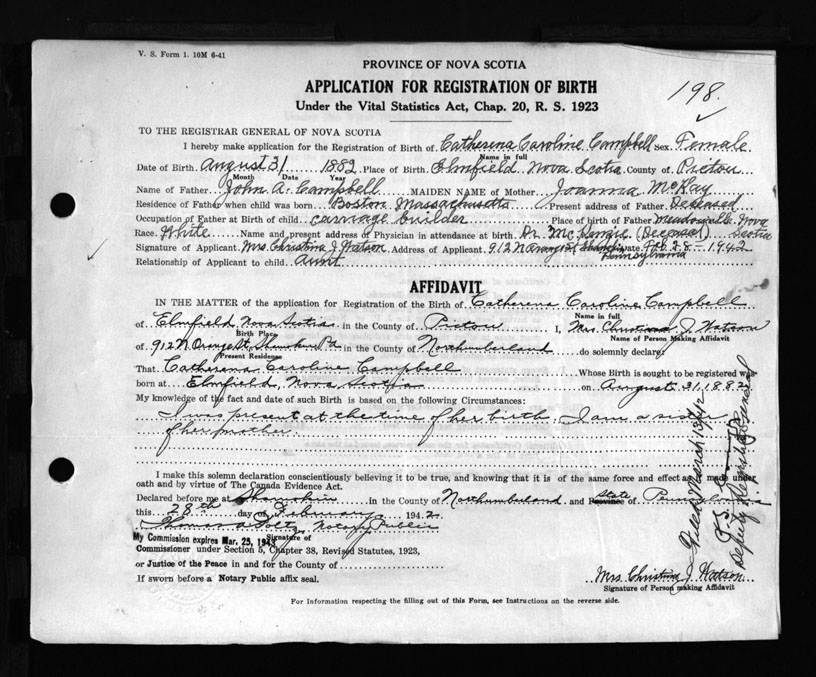 V. S. Form 1. 10M 6-41
PROVINCE OF NOVA SCOTIA
APPLICATION FOR REGISTRATION OF BIRTH
Under the Vital Statistics Act, Chap. 20, R. S. 1923
198.
TO THE REGISTRAR GENERAL OF NOVA SCOTIA
I hereby make application for the Registration of Birth of Catherena Caroline Campbell Sex. Female
Name in full
Date of Birth August 31 1882 Place of Birth. Elmfield Nova Scotia County of Pictou
Month Date Year
Name of Father John A. Campbell MAIDEN NAME of Mother Joanna McKay
Residence of Father when child was born Boston Massachusetts Present address of Father Deceased
Occupation of Father at Birth of child. carriage builder Place of birth of Father Nova Scotia
Race. White Name and present address of Physician in attendance at birth. Dr. McKenzie (Deceased)
Signature of Applicant. Mrs. Christina J. Watson Address of Applicant. 912 N. Orange St Date. Feb. 28 - 1942
Pennsylvania
Relationship of Applicant to child. Aunt
AFFIDAVIT
IN THE MATTER of the application for Registration of the Birth of Catherena Caroline Campbell
Name in full
of Elmfield Nova Scotia in the County of Pictou I, Mrs. Christina J. Watson
Birth Place Name of Person Making Affidavit
of 912 N. Orange St, Shamokin Pa in the County of Northumberland do solemnly declare:
Present Residence
That Catherena Caroline Campbell Whose Birth is sought to be registered was
born at Elmfield, Nova Scotia on August 31, 1882
My knowledge of the fact and date of such Birth is based on the following Circumstances:
I was present at the time of her birth. I am a sister
of her mother.
I make this solemn declaration conscientiously believing it to be true, and knowing that it is of the same force and effect as if made under
oath and by virtue of The Canada Evidence Act.
Declared before me at Shamokin in the County of Northumberland and State Province of
this 28th day of February 1942.
Notary Public
My Commission expires Mar. 25, 1943 Signature of
Commissioner under Section 5, Chapter 38, Revised Statutes, 1923,
or Justice of the Peace in and for the County of
If sworn before a Notary Public affix seal.
Mrs. Christina J. Watson
Signature of Person making Affidavit
For Information respecting the filling out of this Form, see Instructions on the reverse side.
Filed March 13th/42
Deputy Registrar General